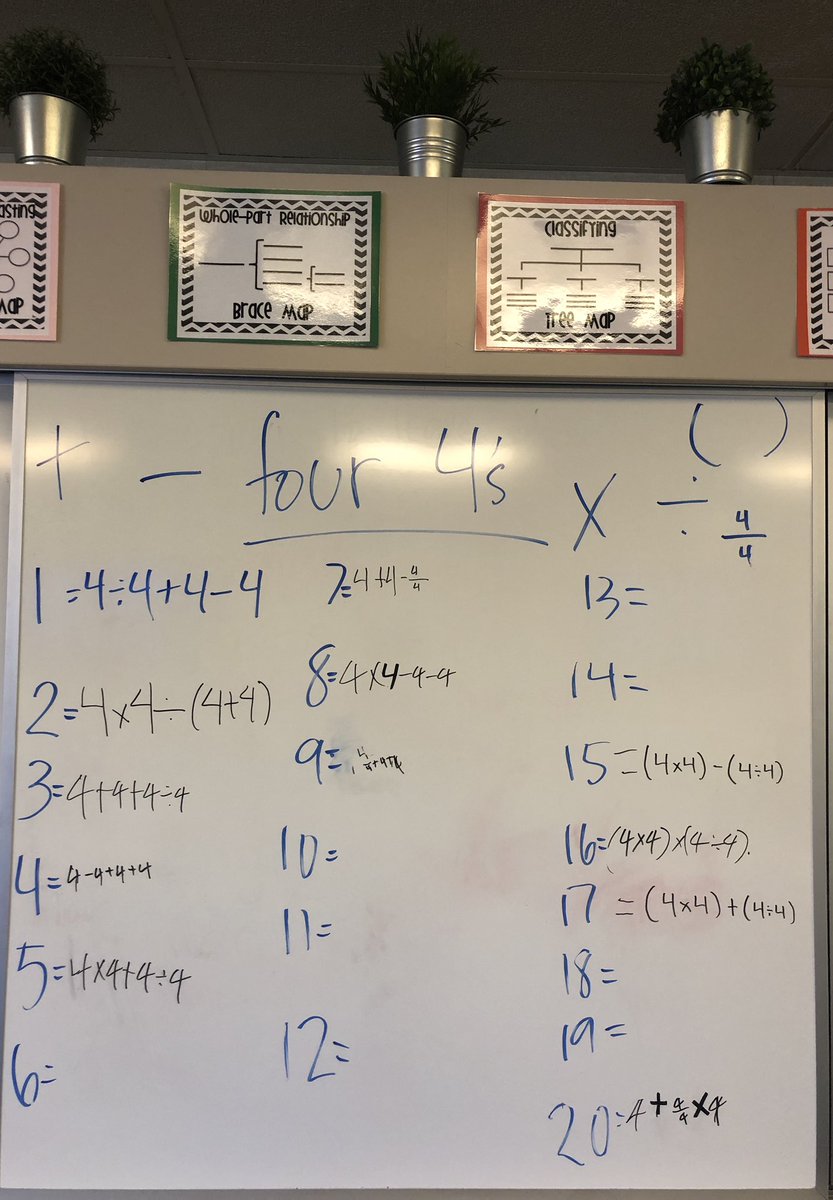 asting
MAP
Whole-Part Relationship
Brace Map
Classifying
Tree Map
+ - four 4's × ÷ ( ) 4/4
1=4÷4+4-4
2=4×4÷(4+4)
3=4+4+4÷4
4=4-4+4+4
5=4×4+4÷4
6=
7=4+4-4/4
8=4×4-4-4
9=
10=
11=
12=
13=
14=
15=(4×4)-(4÷4)
16=(4×4)×(4÷4).
17=(4×4)+(4÷4)
18=
19=
20=4+4/4×4